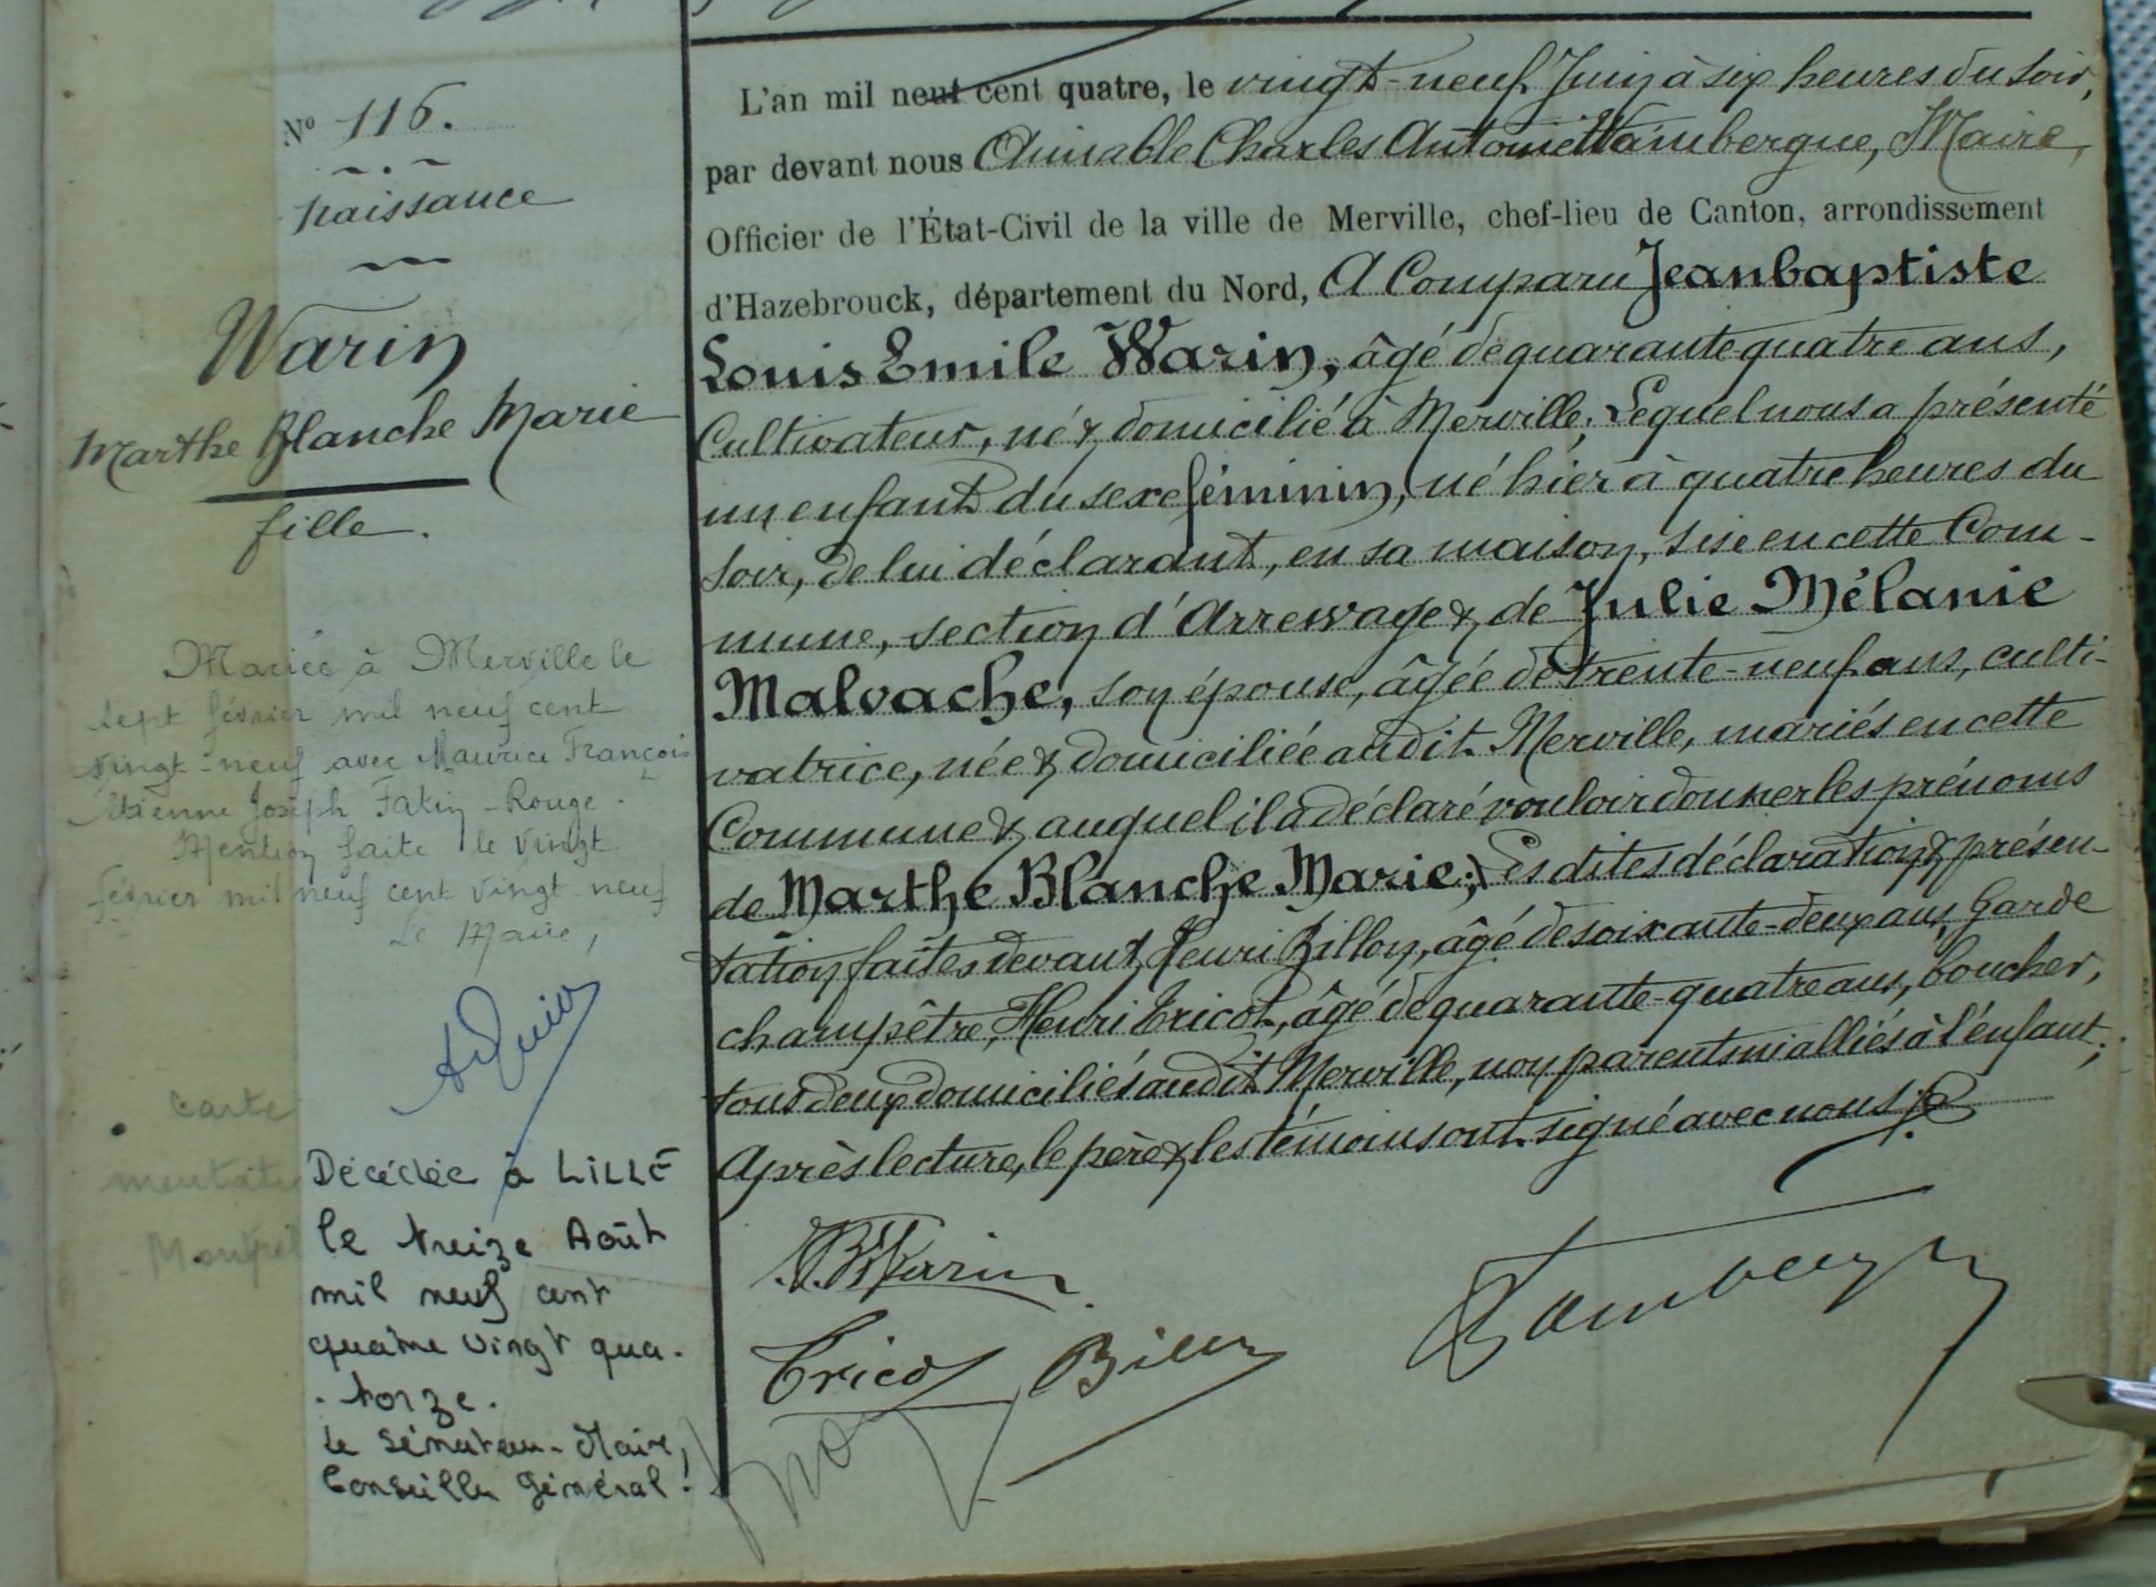 N° 116.
Naissance
Warin
Marthe Blanche Marie
fille.
Mariée à Merville le
sept février mil neuf cent
vingt-neuf avec Maurice François
Etienne Joseph Fatin-Rouge.
Mention faite le vingt
février mil neuf cent vingt-neuf
Le Maire,
carte
Décédée à LILLE
le treize Août
mil neuf cent
quatre vingt qua-
-torze.
le Sénateur-Maire,
Conseiller Général.
L'an mil neuf cent quatre, le vingt-neuf Juin à six heures du soir,
par devant nous Aimable Charles Antoine Wambergue, Maire,
Officier de l'État-Civil de la ville de Merville, chef-lieu de Canton, arrondissement
d'Hazebrouck, département du Nord, A Comparu Jeanbaptiste
Louis Emile Warin, âgé de quarante quatre ans,
Cultivateur, né & domicilié à Merville; Lequel nous a présenté
un enfant du sexe féminin, né hier à quatre heures du
soir, de lui déclarant, en sa maison, sise en cette Com-
mune, section d'Arrewage & de Julie Mélanie
Malvache, son épouse, âgée de trente-neuf ans, culti-
vatrice, née & domiciliée audit Merville, mariés en cette
Commune & auquel il a déclaré vouloir donner les prénoms
de Marthe Blanche Marie; Les dites déclaration & présen-
tation faites devant Henri Billon, âgé de soixante-deux ans, Garde
champêtre, Henri Tricot, âgé de quarante-quatre ans, boucher,
tous deux domiciliés audit Merville, non parents ni alliés à l'enfant;
Après lecture, le père & les témoins ont signé avec nous.
J.B Warin
Tricot Billon
Wambergue